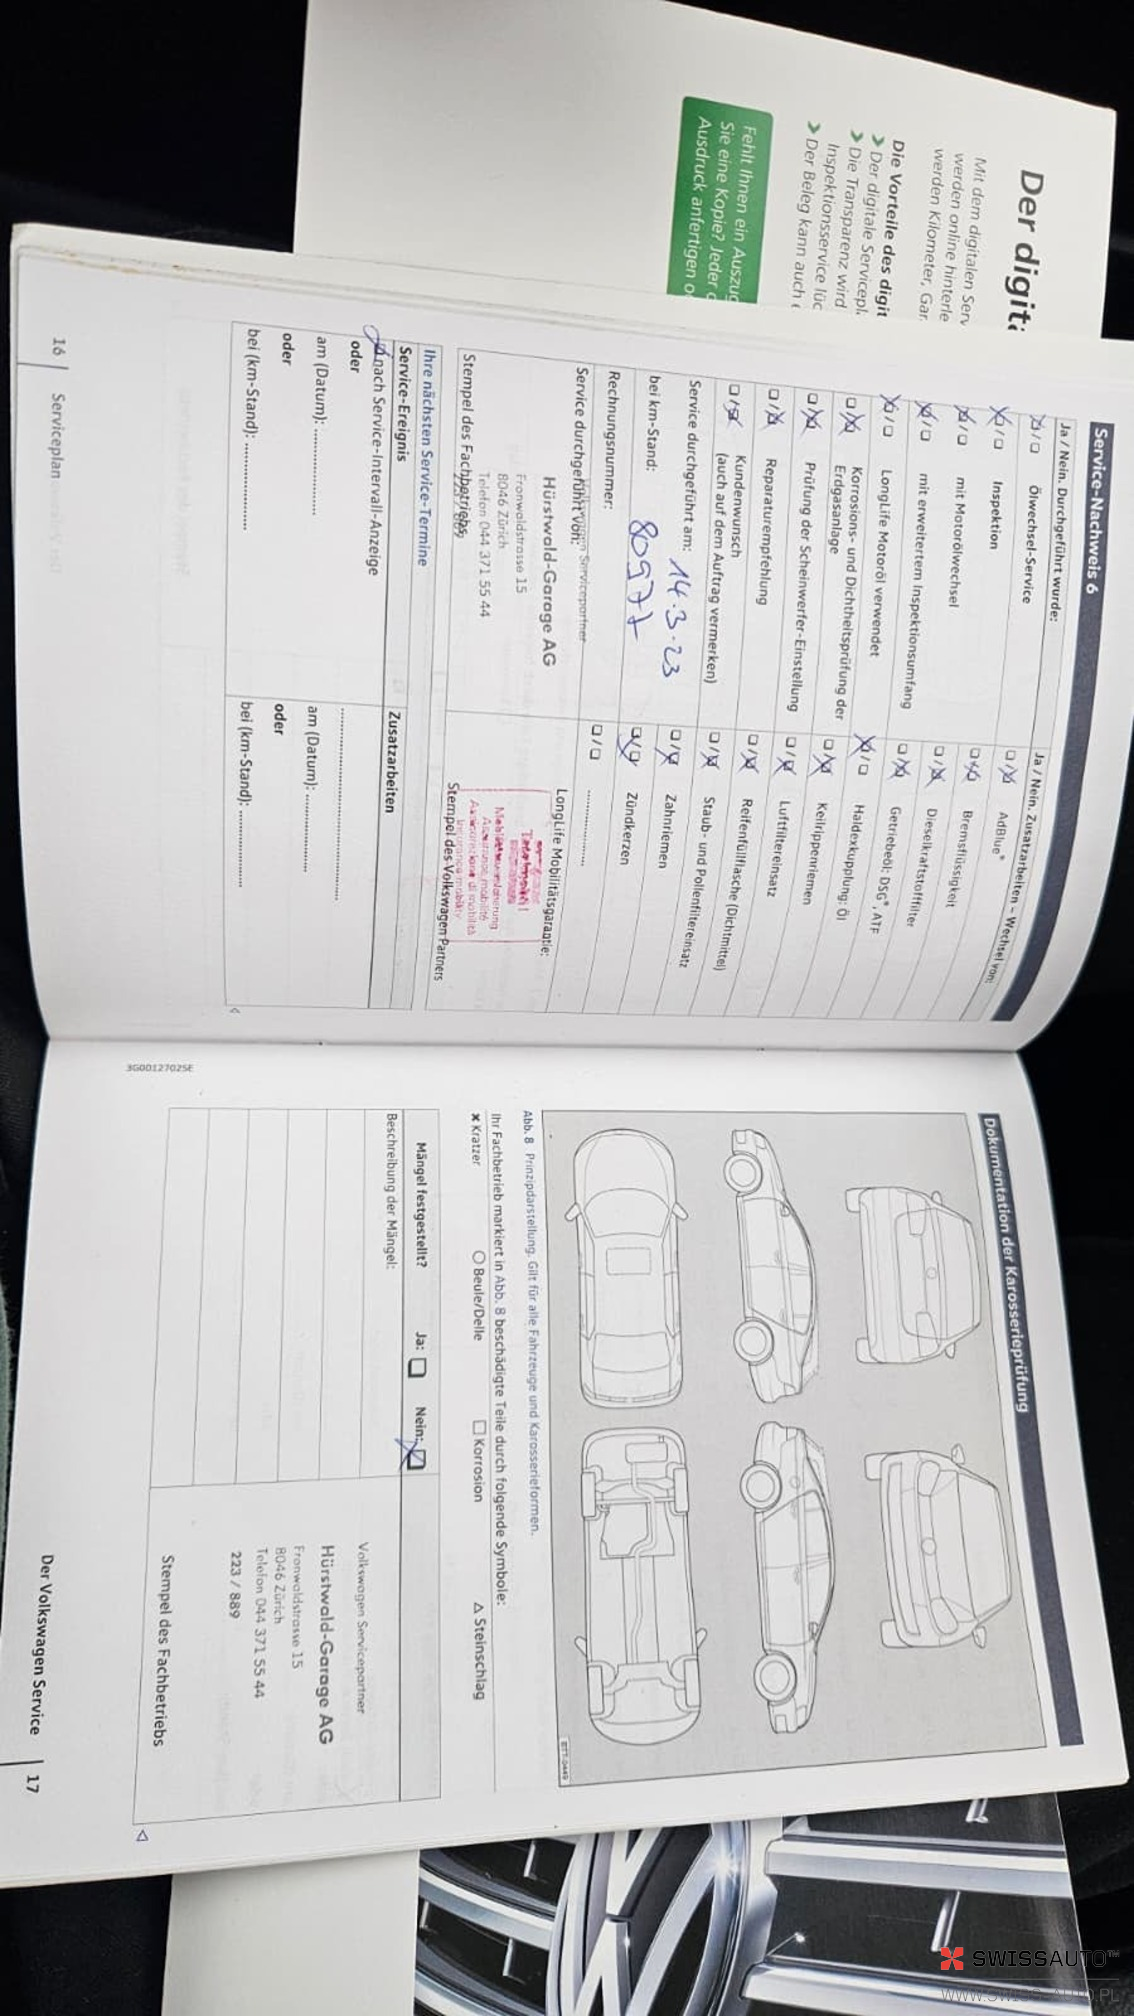 Der digita
Mit dem digitalen Serv
werden online hinterle
werden Kilometer, Gar
Die Vorteile des digit
❯ Der digitale Servicepl
❯ Die Transparenz wird
Inspektionsservice lüc
❯ Der Beleg kann auch
Fehlt Ihnen ein Auszug
Sie eine Kopie? Jeder
Ausdruck anfertigen o
Service-Nachweis 6
Ja / Nein. Durchgeführt wurde:
Ölwechsel-Service
Inspektion
mit Motorölwechsel
mit erweitertem Inspektionsumfang
LongLife Motoröl verwendet
Korrosions- und Dichtheitsprüfung der
Erdgasanlage
Prüfung der Scheinwerfer-Einstellung
Reparaturempfehlung
Kundenwunsch
(auch auf dem Auftrag vermerken)
Service durchgeführt am: 14.3.23
bei km-Stand: 80977
Rechnungsnummer:
Service durchgeführt von:
Volkswagen Servicepartner
Hürstwald-Garage AG
Fronwaldstrasse 15
8046 Zürich
Telefon 044 371 55 44
223 / 889
Stempel des Fachbetriebs
Ja / Nein. Zusatzarbeiten – Wechsel von:
AdBlue®
Bremsflüssigkeit
Dieselkraftstofffilter
Getriebeöl: DSG®, ATF
Haldexkupplung: Öl
Keilrippenriemen
Luftfiltereinsatz
Reifenfüllflasche (Dichtmittel)
Staub- und Pollenfiltereinsatz
Zahnriemen
Zündkerzen
LongLife Mobilitätsgarantie:
Totalmobil!
Mobilitätsversicherung
Assurance mobilité
Assicurazione di mobilità
Insurance mobility
Stempel des Volkswagen Partners
Ihre nächsten Service-Termine
Service-Ereignis
Zusatzarbeiten
nach Service-Intervall-Anzeige
oder
am (Datum):
oder
bei (km-Stand):
am (Datum):
oder
bei (km-Stand):
16 | Serviceplan
Dokumentation der Karosserieprüfung
BTT-0449
Abb. 8 Prinzipdarstellung. Gilt für alle Fahrzeuge und Karosserieformen.
Ihr Fachbetrieb markiert in Abb. 8 beschädigte Teile durch folgende Symbole:
✖ Kratzer ○ Beule/Delle □ Korrosion △ Steinschlag
Mängel festgestellt? Ja: Nein:
Beschreibung der Mängel:
Volkswagen Servicepartner
Hürstwald-Garage AG
Fronwaldstrasse 15
8046 Zürich
Telefon 044 371 55 44
223 / 889
Stempel des Fachbetriebs
3G0012702SE
Der Volkswagen Service | 17
SWISSAUTO™
WWW.SWISS-AUTO.PL